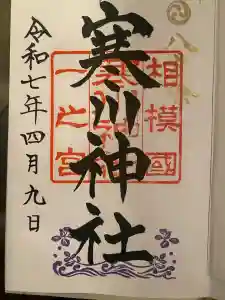 八方除
寒川神社
相模國
一之宮
令和七年四月九日